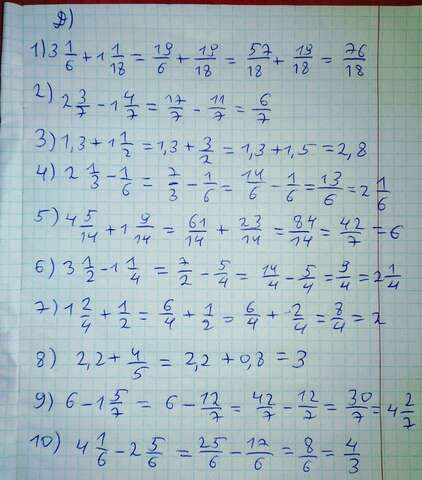 D)
1) 3 1/6 + 1 1/18 = 19/6 + 19/18 = 57/18 + 19/18 = 76/18
2) 2 3/7 - 1 4/7 = 17/7 - 11/7 = 6/7
3) 1,3 + 1 1/2 = 1,3 + 3/2 = 1,3 + 1,5 = 2,8
4) 2 1/3 - 1/6 = 7/3 - 1/6 = 14/6 - 1/6 = 13/6 = 2 1/6
5) 4 5/14 + 1 9/14 = 61/14 + 23/14 = 84/14 = 42/7 = 6
6) 3 1/2 - 1 1/4 = 7/2 - 5/4 = 14/4 - 5/4 = 9/4 = 2 1/4
7) 1 2/4 + 1/2 = 6/4 + 1/2 = 6/4 + 2/4 = 8/4 = 2
8) 2,2 + 4/5 = 2,2 + 0,8 = 3
9) 6 - 1 5/7 = 6 - 12/7 = 42/7 - 12/7 = 30/7 = 4 2/7
10) 4 1/6 - 2 5/6 = 25/6 - 17/6 = 8/6 = 4/3